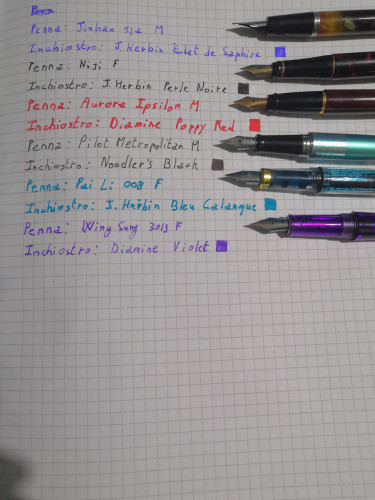 Penna
Penna: Jinhao 51a M
Inchiostro: J. Herbin Éclat de Saphire
Penna: Niji F
Inchiostro: J. Herbin Perle Noire
Penna: Aurora Ipsilon M
Inchiostro: Diamine Poppy Red
Penna: Pilot Metropolitan M
Inchiostro: Noodler's Black
Penna: Pai Li 008 F
Inchiostro: J. Harbin Bleu Calanque
Penna: Wing Sung 3013 F
Inchiostro: Diamine Violet